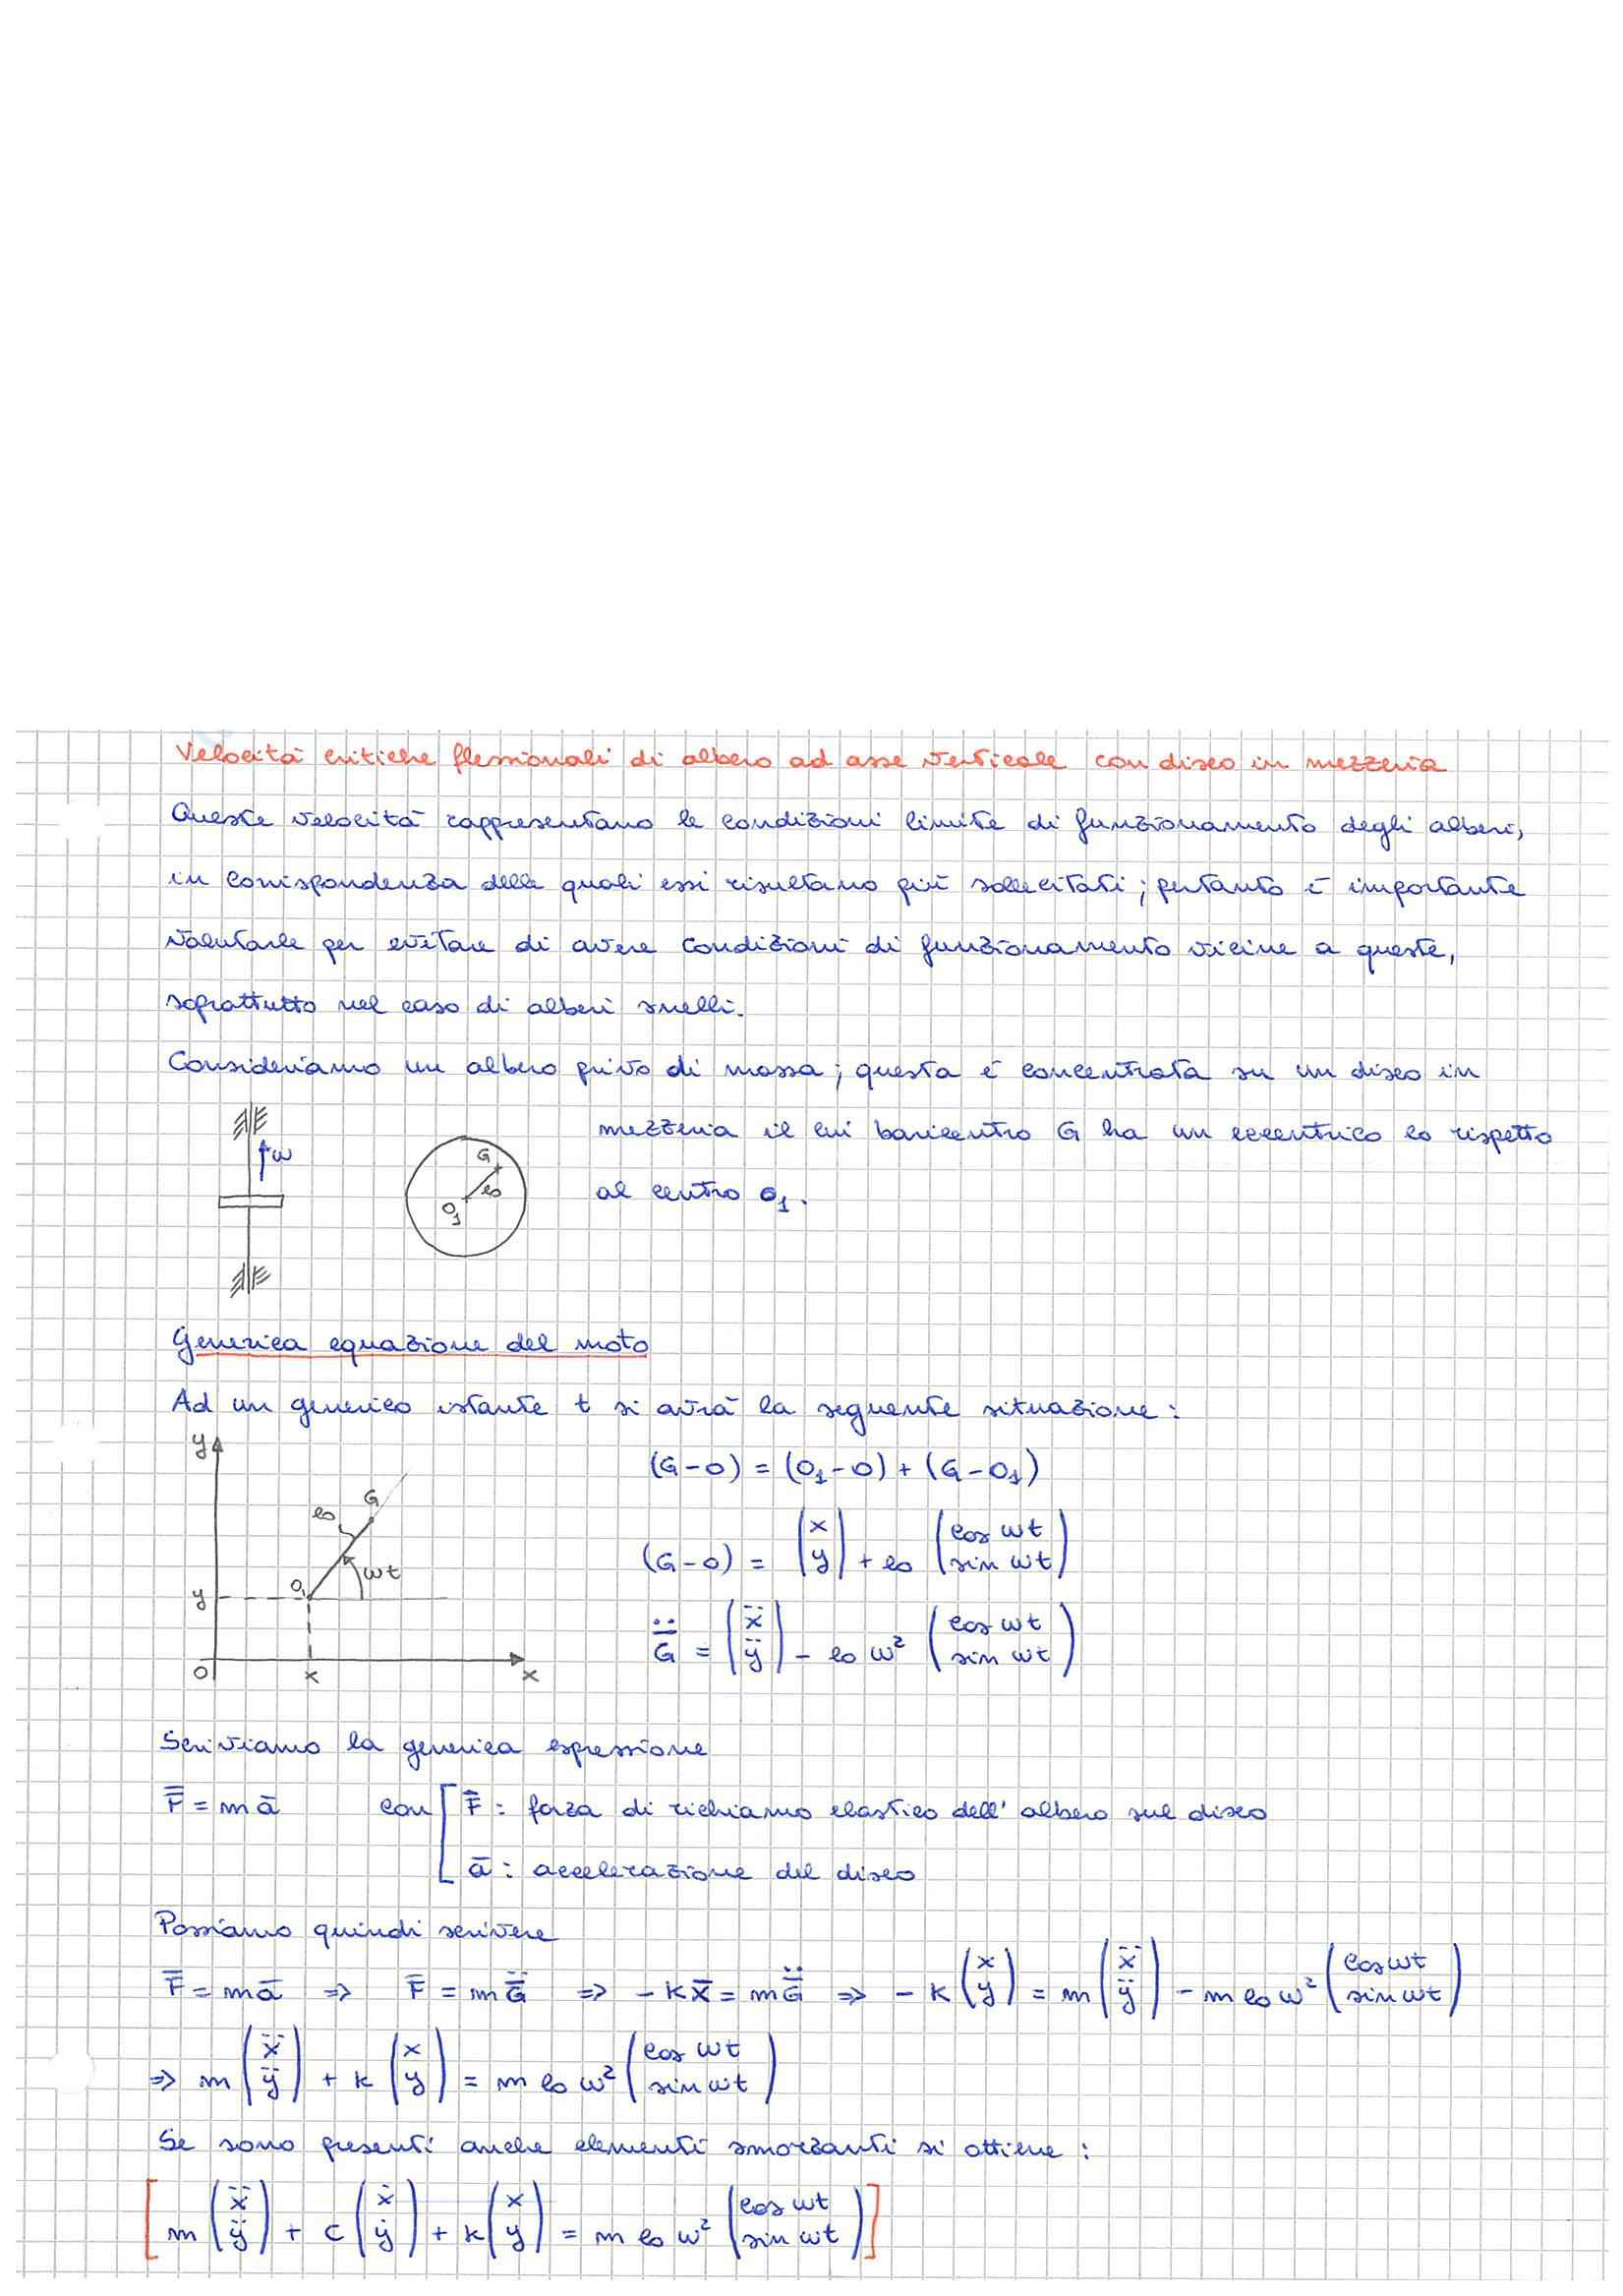 Velocità critiche flessionali di albero ad asse verticale con disco in mezzeria
Queste velocità rappresentano le condizioni limite di funzionamento degli alberi,
in corrispondenza delle quali essi risultano più sollecitati; pertanto è importante
valutarle per evitare di avere condizioni di funzionamento vicine a queste,
soprattutto nel caso di alberi snelli.
Consideriamo un albero privo di massa; questa è concentrata su un disco in
mezzeria il cui baricentro G ha un eccentrico e₀ rispetto
al centro O₁.
ω
G
e₀
O₁
Generica equazione del moto
Ad un generico istante t si avrà la seguente situazione:
y
G
e₀
O₁
ωt
y
O
x
x
(G-O) = (O₁-O) + (G-O₁)
(G-O) = (x y) + e₀ (cos ωt sin ωt)
G̈ = (ẍ ÿ) - e₀ ω² (cos ωt sin ωt)
Scriviamo la generica espressione
F̄ = m ā con [ F̄ : forza di richiamo elastico dell'albero sul disco
ā : accelerazione del disco
Possiamo quindi scrivere
F̄ = m ā => F̄ = m G̈ => - k x̄ = m G̈ => - k (x y) = m (ẍ ÿ) - m e₀ ω² (cos ωt sin ωt)
=> m (ẍ ÿ) + k (x y) = m e₀ ω² (cos ωt sin ωt)
Se sono presenti anche elementi smorzanti si ottiene :
[ m (ẍ ÿ) + c (ẋ ẏ) + k (x y) = m e₀ ω² (cos ωt sin ωt) ]